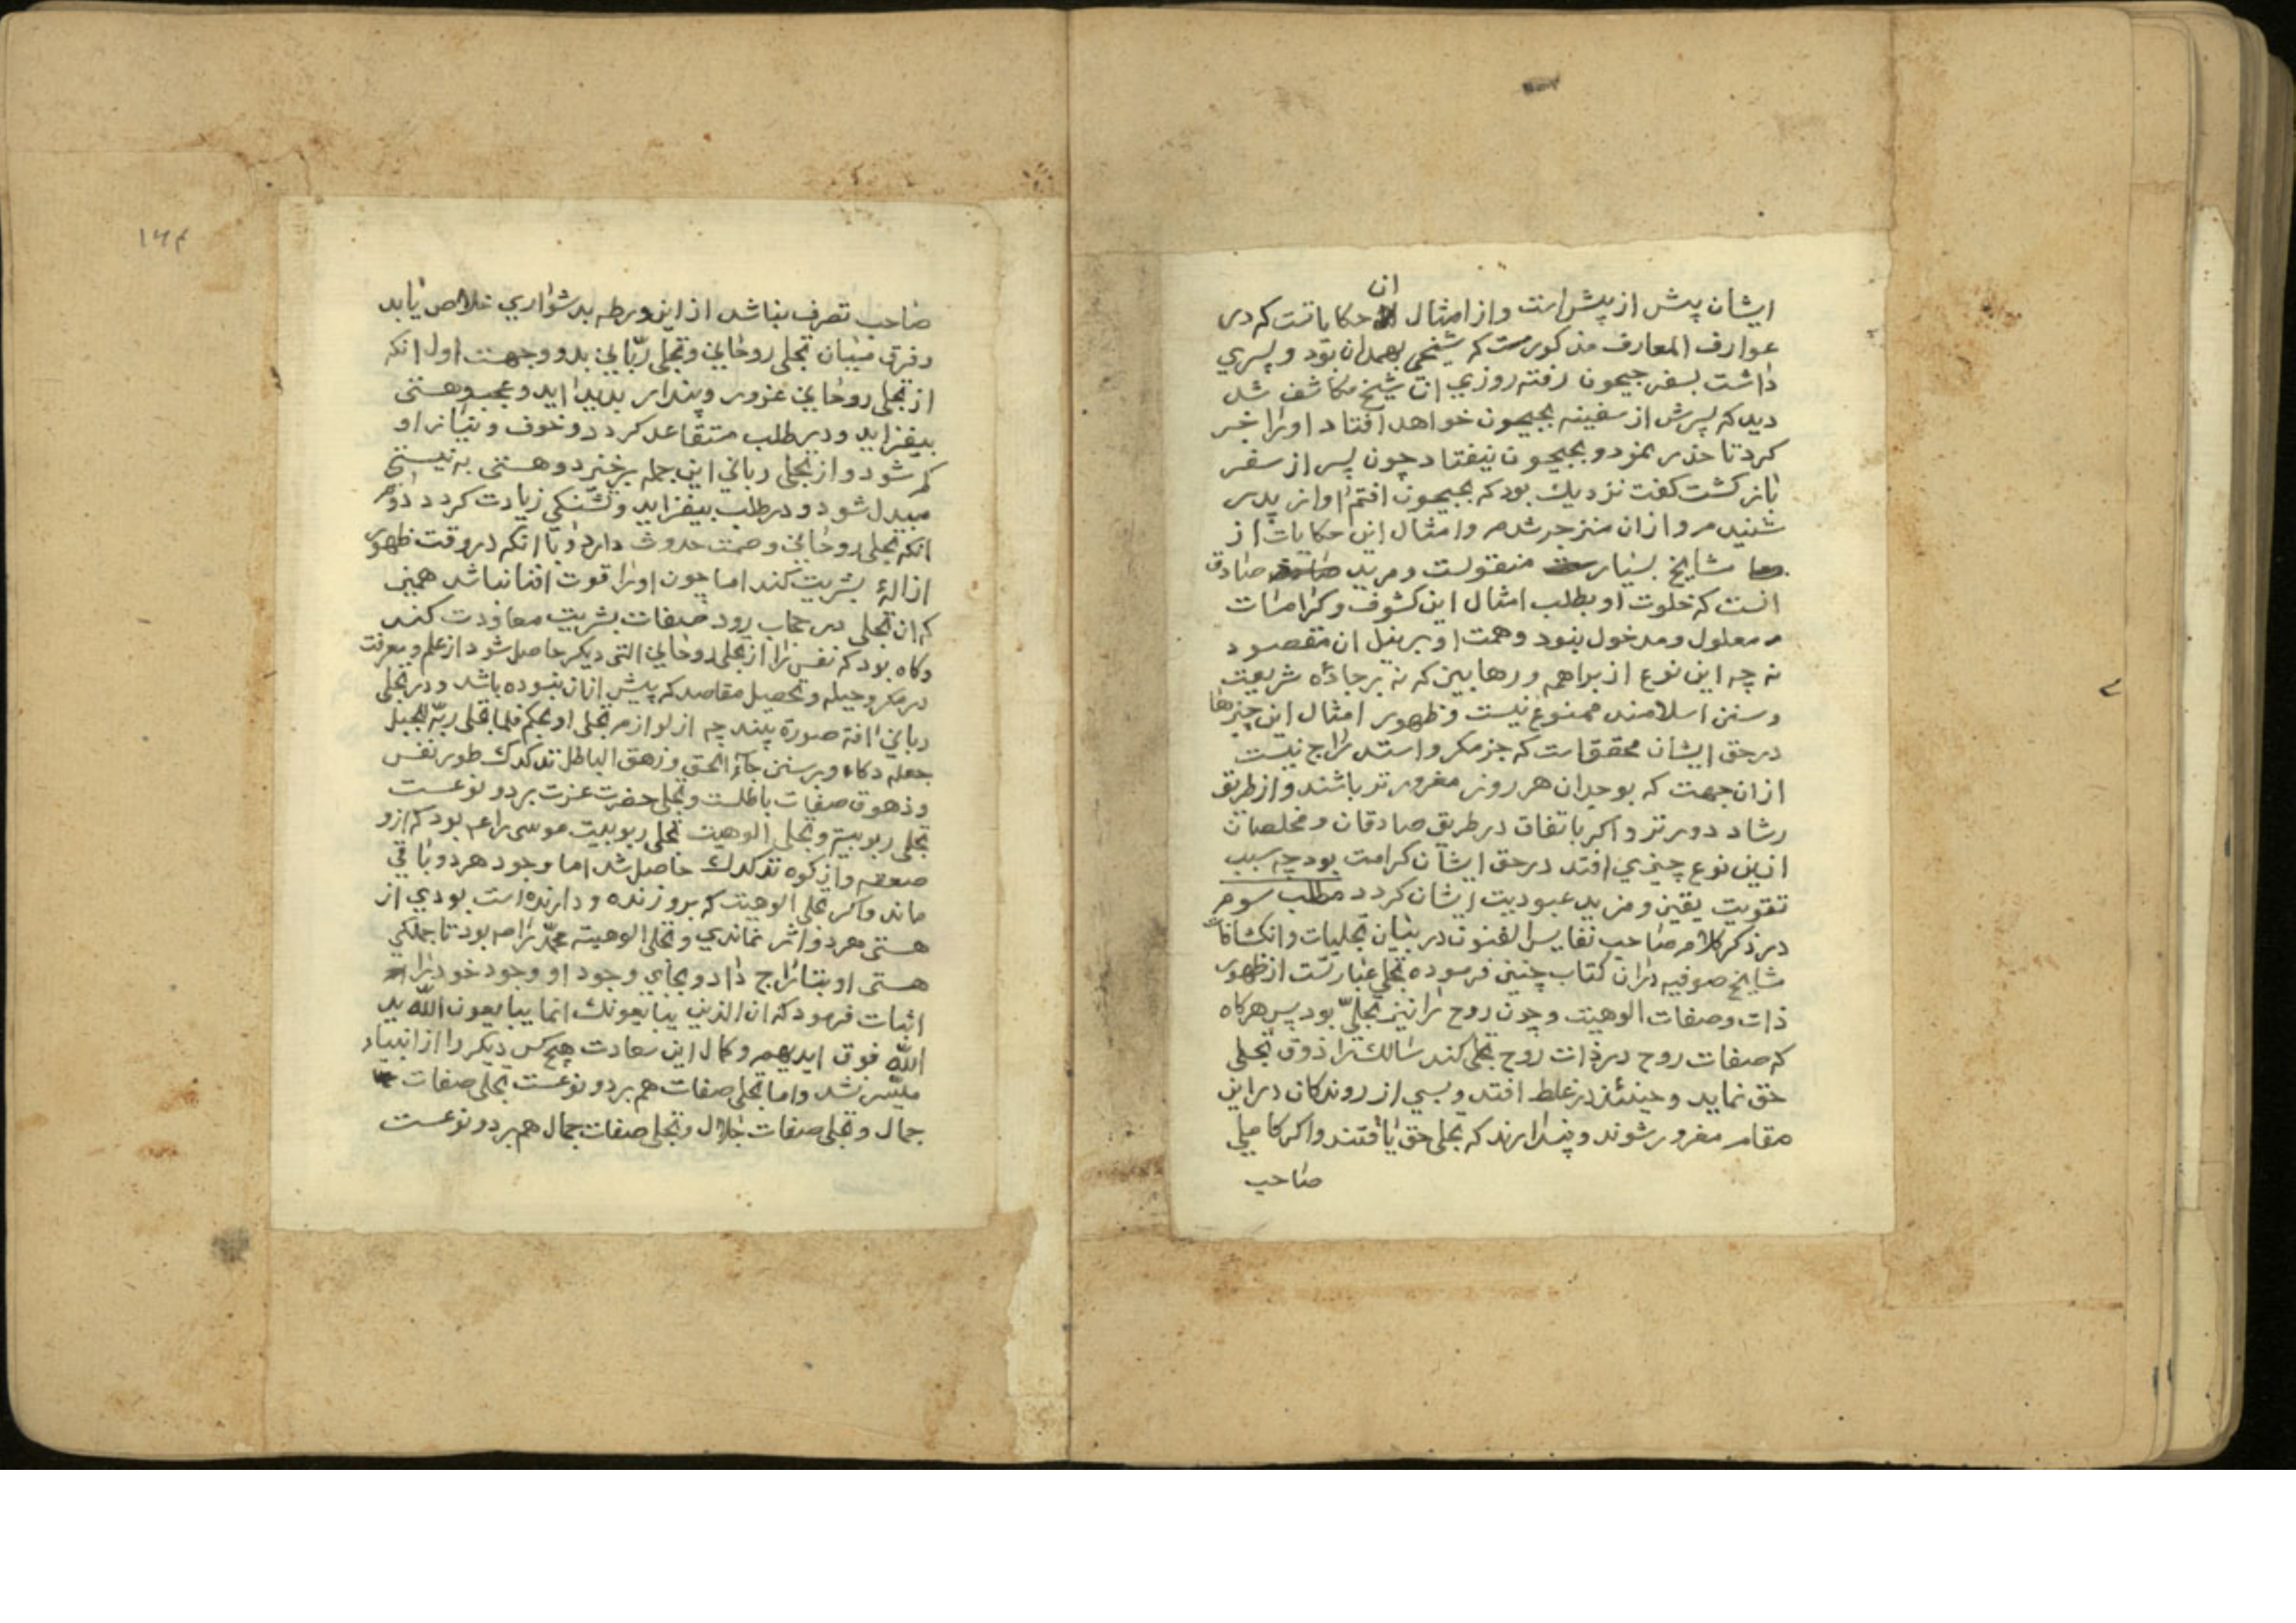 ان
ایشان پیش از پیش است و از امثال حکایاتست که در
عوارف المعارف مذکورست که شیخی بهمدان بود و پسری
داشت بسفر جیحون رفته روزی ان شیخ مکاشف شد
دید که پسرش از سفینه بجیحون خواهد افتاد او را خبر
کرد تا حذر نمود و بجیحون نیفتاد چون پسر از سفر
باز کشت کفت نزدیک بود که بجیحون افتم اواز پدر
شنیدم و از ان منزجر شدم و امثال این حکایات از
مشایخ بسیار منقولست و مرید صادق
انست که خلوت او بطلب امثال این کشوف و کرامات
معلول و مدخول نبود و همت او بر نیل ان مقصود
نه چه این نوع از براهمه و رهابین که نه بر جادۀ شریعت
و سنن اسلامند ممنوع نیست و ظهور امثال این چیزها
در حق ایشان محققاست که جز مکر و استدراج نیست
از ان جهت که بوجدان هر روز مغرورتر باشند و از طریق
رشاد دورتر و اکر باتفاق در طریق صادقان و مخلصان
ازین نوع چیزی افتد در حق ایشان کرامت بود چه سبب
تقویت یقین و مزید عبودیت ایشان کردد مطلب سوم
در ذکر کلام صاحب نفایس الفنون در بیان تجلیات و انکشافات
مشایخ صوفیه در ان کتاب چنین فرموده تجلی عبارتست از ظهور
ذات و صفات الوهیت و چون روح را نیز تجلّی بود پس هرکاه
که صفات روح در ذات روح تجلی کند سالک را ذوق تجلی
حق نماید و حینئذ در غلط افتد و بسی از روندکان در این
مقام مغرور شوند و پندارند که تجلی حق یافتند و اکر کاملی
صاحب
۱۶۴
صاحب تصرف نباشد از این ورطه بدشواری خلاص یابد
و فرق میان تجلی روحانی و تجلی ربّانی بدو وجهست اول انکه
از تجلی روحانی غرور و پندار پدید اید و عجب و هستی
بیفزاید و در طلب متقاعد کردد و خوف و نیاز او
کم شود و از تجلی ربانی این جمله برخیزد و هستی به نیستی
مبدل شود و در طلب بیفزاید و تشنکی زیادت کردد دوم
انکه تجلی روحانی وصمت حدوث دارد و با انکه در وقت ظهور
ازالۀ بشریت کند اما چون او را قوت افنا نباشد همین
که ان تجلی در حجاب رود صفات بشریت معاودت کند
و کاه بود که نفس را از تجلی روحانی التی دیکر حاصل شود از علم و معرفت
در مکر و حیله و تحصیل مقاصد که پیش از ان نبوده باشد و در تجلی
ربانی افة صورة نبندد چه از لوازم تجلی او بحکم فلما تجلی ربّه للجبل
جعله دکاء و بر سنن جاء الحق و زهق الباطل تدکدک طور نفس
و ذهوق صفات باطلست و تجلی حضرت عزت بر دو نوعست
تجلی ربوبیة و تجلی الوهیت تجلی ربوبیت موسی راعم بود که ازو
صعقه و از کوه تدکدک حاصل شد اما وجود هر دو باقی
ماند و اکر تجلی الوهیت که بروزنده و دارنده است بودی از
هستی هر دو اثر نماندی و تجلی الوهیته محمّد راصم بود تا جملکی
هستی او بتاراج داد و بجای وجود او وجود خود را
اثبات فرمود که ان الذین یبایعونک انما یبایعون اللّه ید
اللّه فوق ایدیهم و کمال این سعادت هیچ کس دیکر را از انبیاء
میسّر نشد و اما تجلی صفات هم بر دو نوعست تجلی صفات
جمال و تجلی صفات جلال و تجلی صفات جمال هم بر دو نوعست